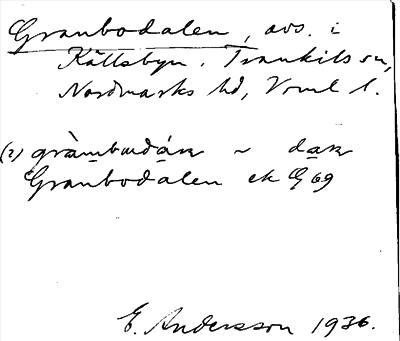 Granbodalen, avs. i
Källsbyn. Trankils sn,
Nordmarks hd, Vrml l.
(2) gràmbωdάɴ ~ daɴ
Granbodalen ek G 69
E. Andersson 1936.